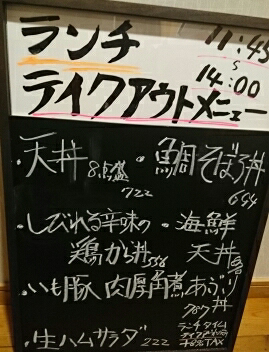 ランチ 11:45
s
テイクアウトメニュー 14:00
・天丼 8点盛 722
・鯛そぼろ丼 694
・しびれる辛味の鶏から丼 558
・海鮮天丼
・いも豚 肉厚角煮あぶり
丼
・生ハムサラダ 222
ランチタイム
+8%TAX